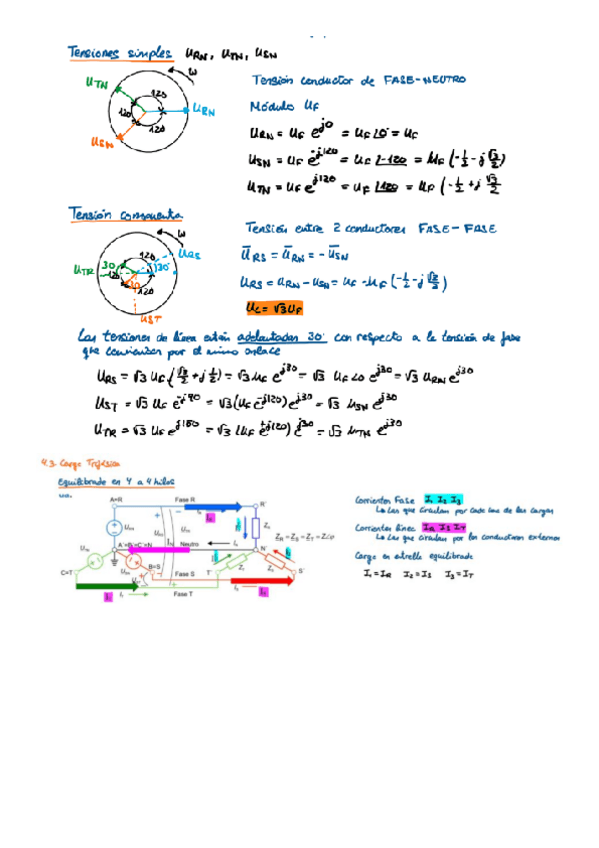 Tensiones simples URN, UTN, USN
ω
UTN
120
URN
120
120
USN
Tensión conductor de FASE-NEUTRO
Módulo UF
URN = UF e^j0 = UF ∠0 = UF
USN = UF e^-j120 = UF ∠-120 = UF (-1/2 - j √3/2)
UTN = UF e^j120 = UF ∠120 = UF (-1/2 + j √3/2
Tensión compuesta
ω
120
URS
UTR
30
30
120
30
120
UST
Tensión entre 2 conductores FASE-FASE
U̅RS = U̅RN = - U̅SN
URS = URN - USN = UF - UF (-1/2 - j √3/2)
UL = √3 UF
Las tensiones de línea están adelantadas 30° con respecto a la tensión de fase
que comienzan por el mismo
URS = √3 UF (√3/2 + j 1/2) = √3 UF e^j30 = √3 UF ∠0 e^j30 = √3 URN e^j30
UST = √3 UF e^-j90 = √3 (UF e^-j120) e^j30 = √3 USN e^j30
UTR = √3 UF e^j150 = √3 (UF e^+j120) e^j30 = √3 UTN e^j30
4.3. Carga Trifásica
Equilibrado en Y a 4 hilos
A=R
Fase R
R'
IR
URN
UTR
ZR
ZR = ZS = ZT = Z∠φ
A'=B'=C'=N
Neutro
IN
N'
UTN
B=S
C=T
Fase S
T'
ZT
ZS
S'
IT
Fase T
IS
Corrientes Fase I1 I2 I3
La las que circulan por cada una de las cargas
Corrientes línea IR IS IT
La las que circulan por los conductores externos
Carga en estrella equilibrada
I1 = IR I2 = IS I3 = IT